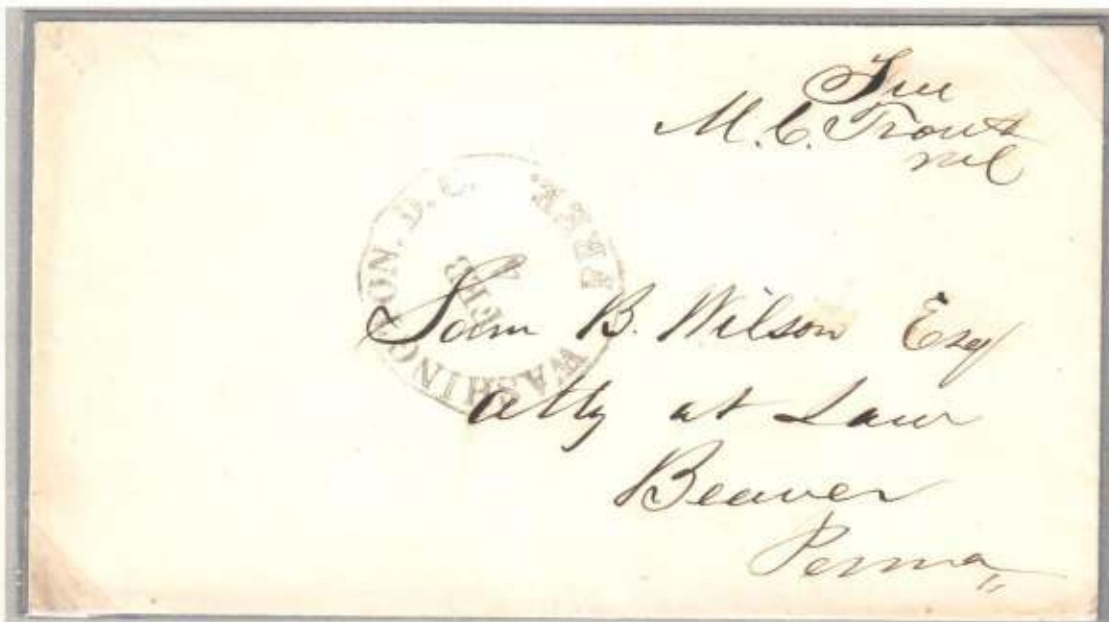 Free
M. C. Trout
MC
WASHINGTON. D.C. FREE.
FEB
Sam B. Wilson Esq
atty at Law
Beaver
Penna